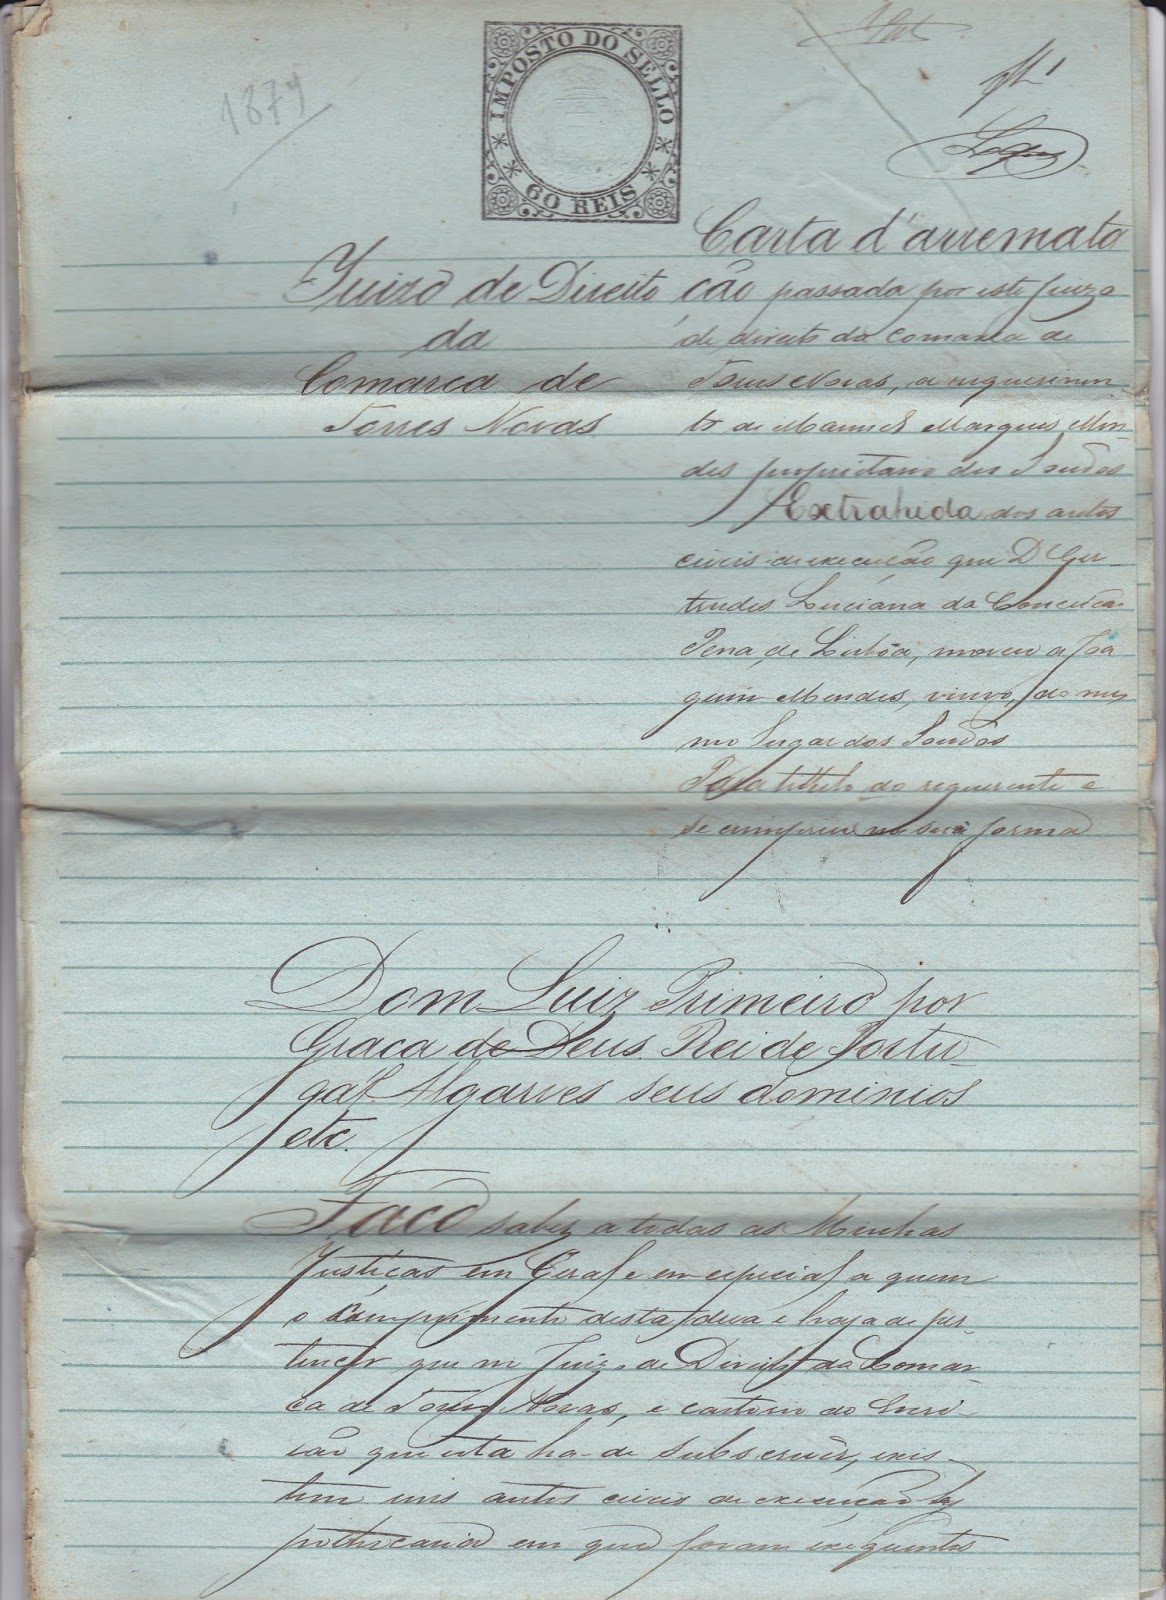 1879
IMPOSTO DO SELLO
60 REIS
fl. 1
Juizo de Direito
da
Comarca de
Torres Novas
Carta d'arremata
ção passada por este juizo
de direito da comarca de
Torres Novas, a requerimen
to de Manuel Marques Men-
des proprietario dos Soudos
Extrahida dos autos
civeis de execução que D Ger-
trudes Luciana da Conceição
Pena, de Lisbôa, moveu a Joa
quim Mendes, viuvo, do mes
mo lugar dos Soudos
Para titulo do requerente e
se cumprir na sua forma
Dom Luiz Primeiro por
Graça de Deus Rei de Portu-
gal Algarves seus dominios
etc.
Faço saber a todas as Minhas
Justiças em Geral e em especial a quem
o cumprimento desta deva e haja de per-
tencer que no Juizo de Direito da Comar-
ca de Torres Novas, e cartorio do Escri-
vão que esta ha-de subscrever, exis-
tem uns autos civeis de execução hy
pothecaria em que foram exequentes